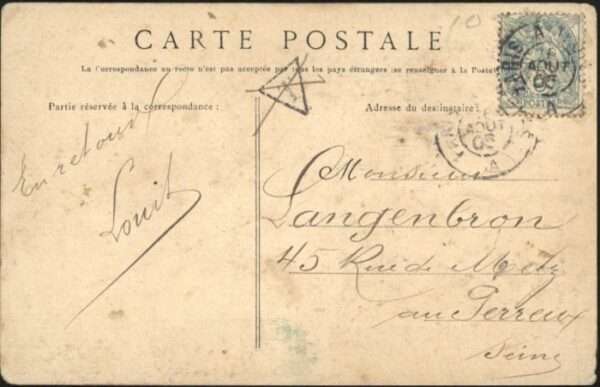 CARTE POSTALE
La Correspondance au recto n'est pas acceptée par tous les pays étrangers (se renseigner à la Poste)
Partie réservée à la correspondance :
Adresse du destinataire :
10
PARIS A
AOUT
05
POSTES
AOUT
05
A
En retour
Louit
Monsieur
Langenbron
45 Rue de Metz
au Perreux
Seine